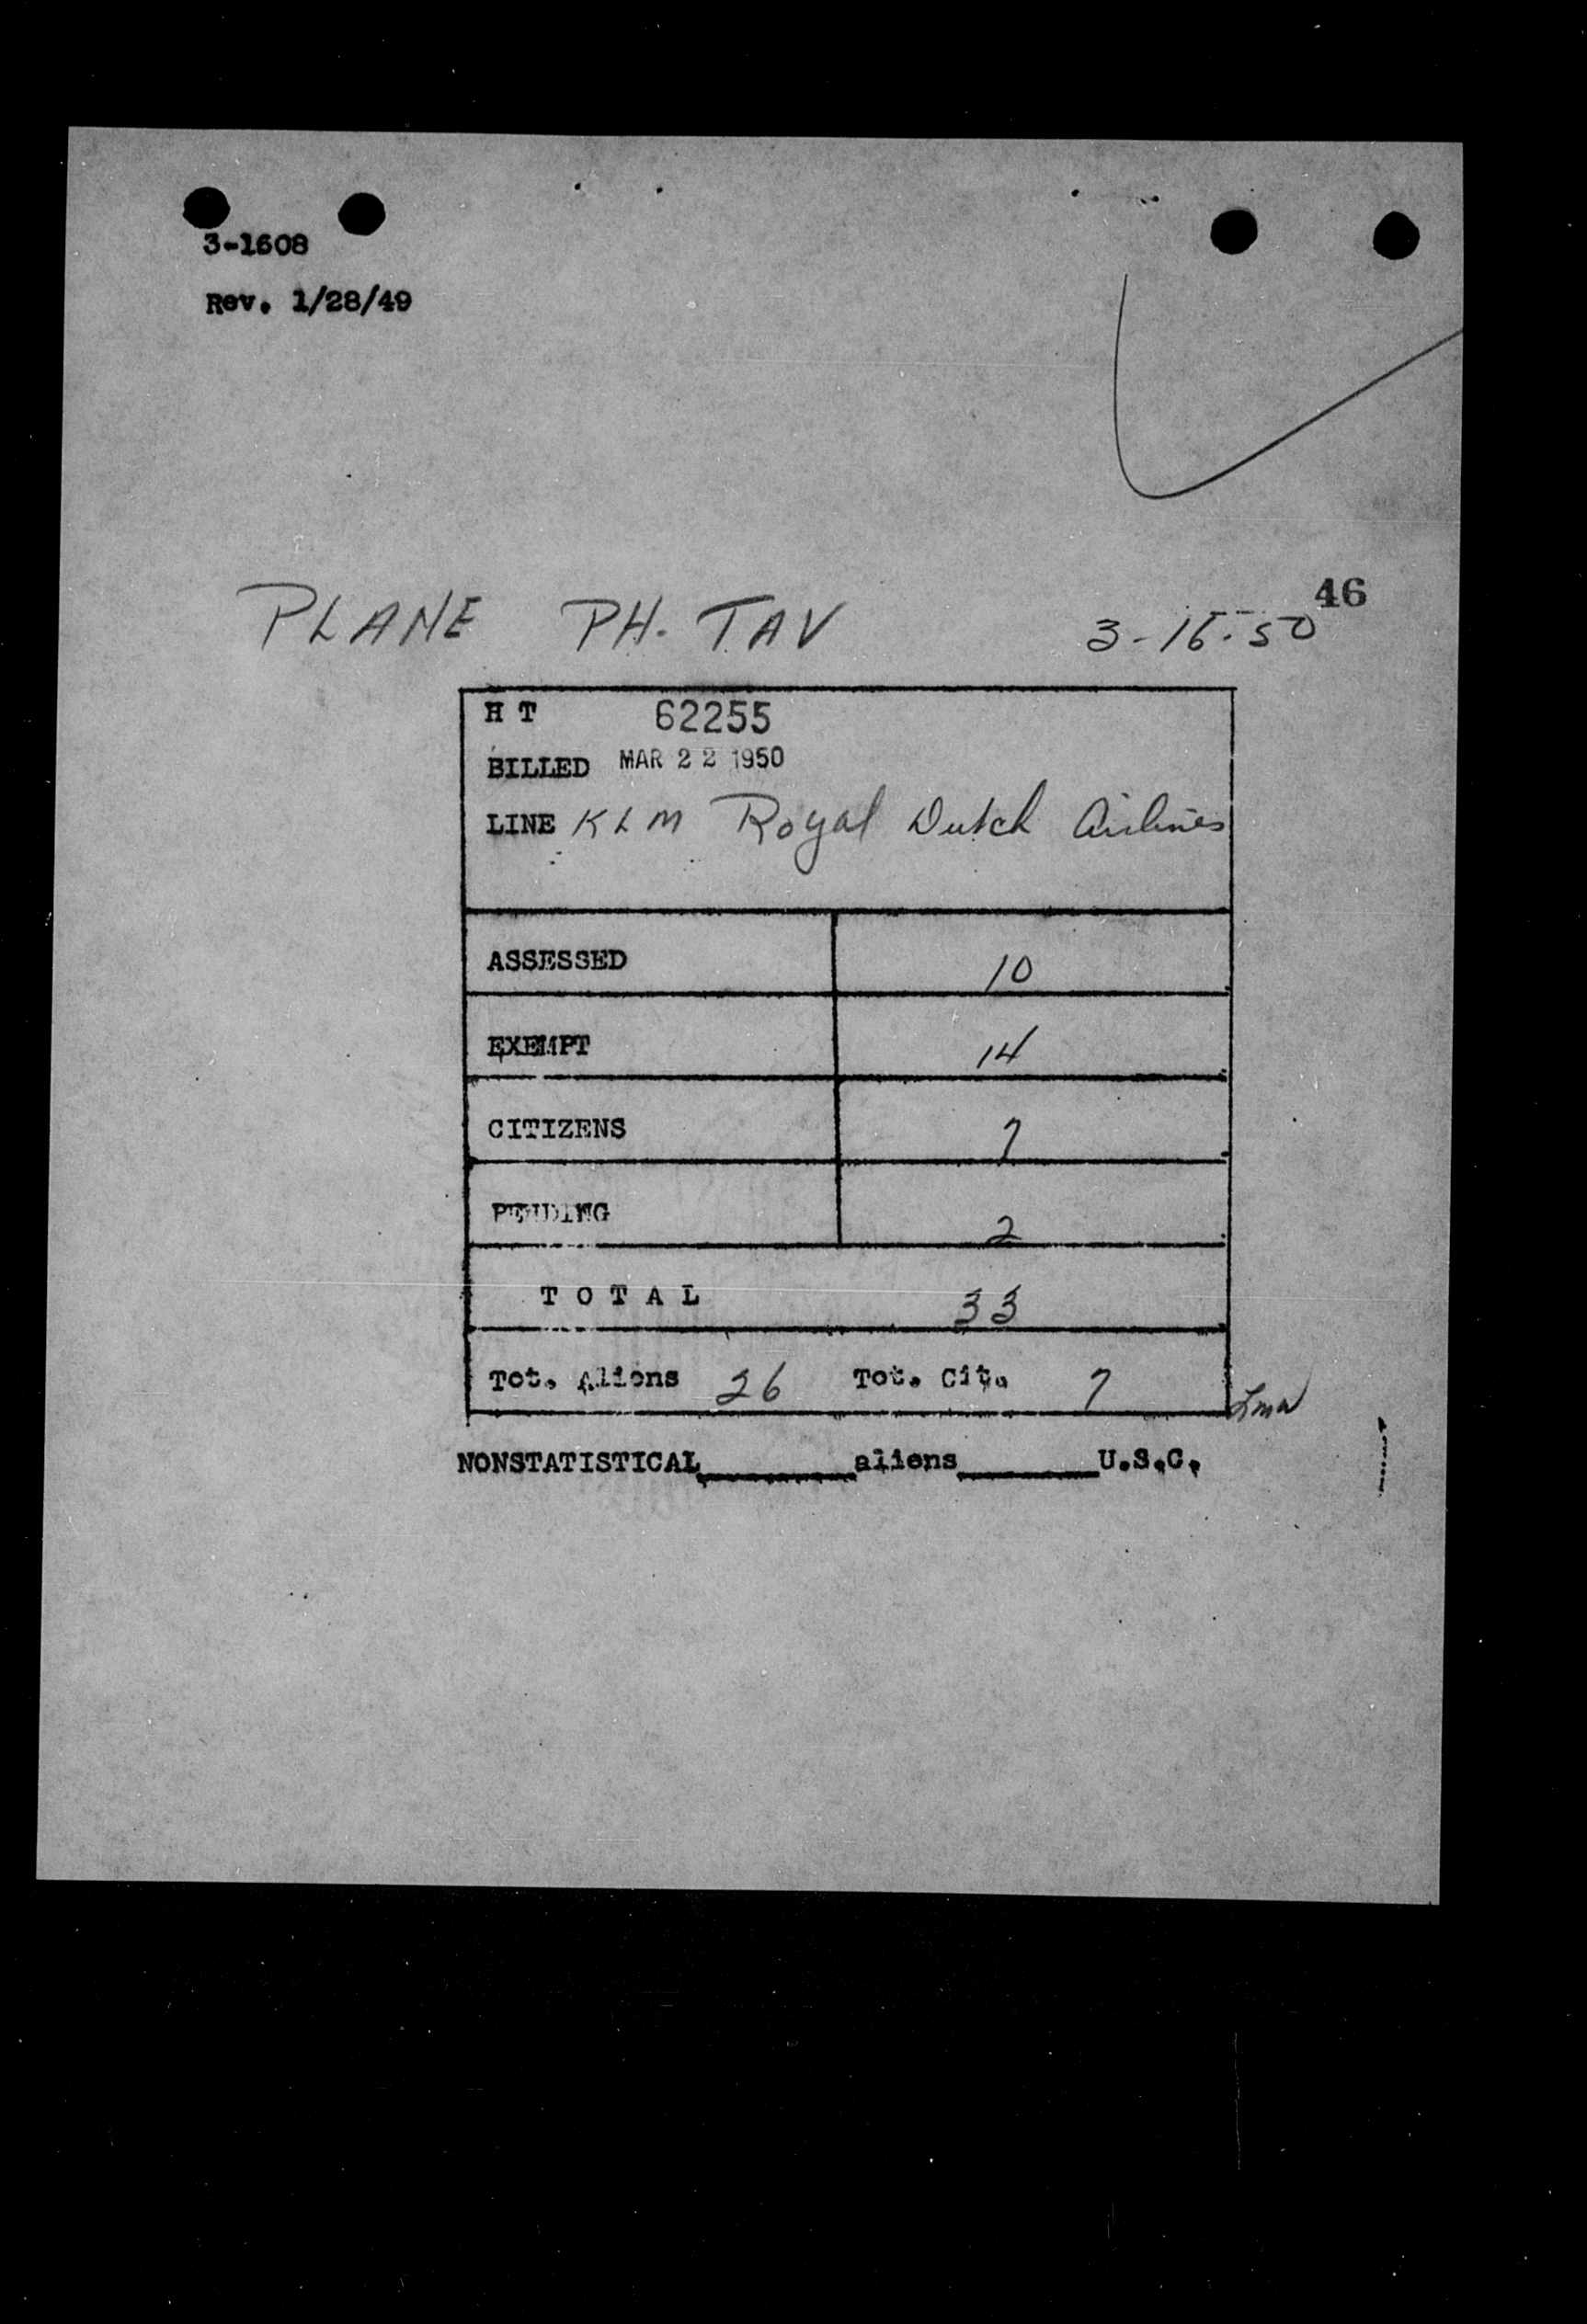 3-1608
Rev. 1/28/49
46
PLANE PH. TAV 3-15-50
H T 62255
BILLED MAR 22 1950
LINE KLM Royal Dutch Airlines
ASSESSED 10
EXEMPT 14
CITIZENS 7
PENDING 2
TOTAL 33
Tot. Aliens 26 Tot. Cit. 7
NONSTATISTICAL______aliens______U.S.C.